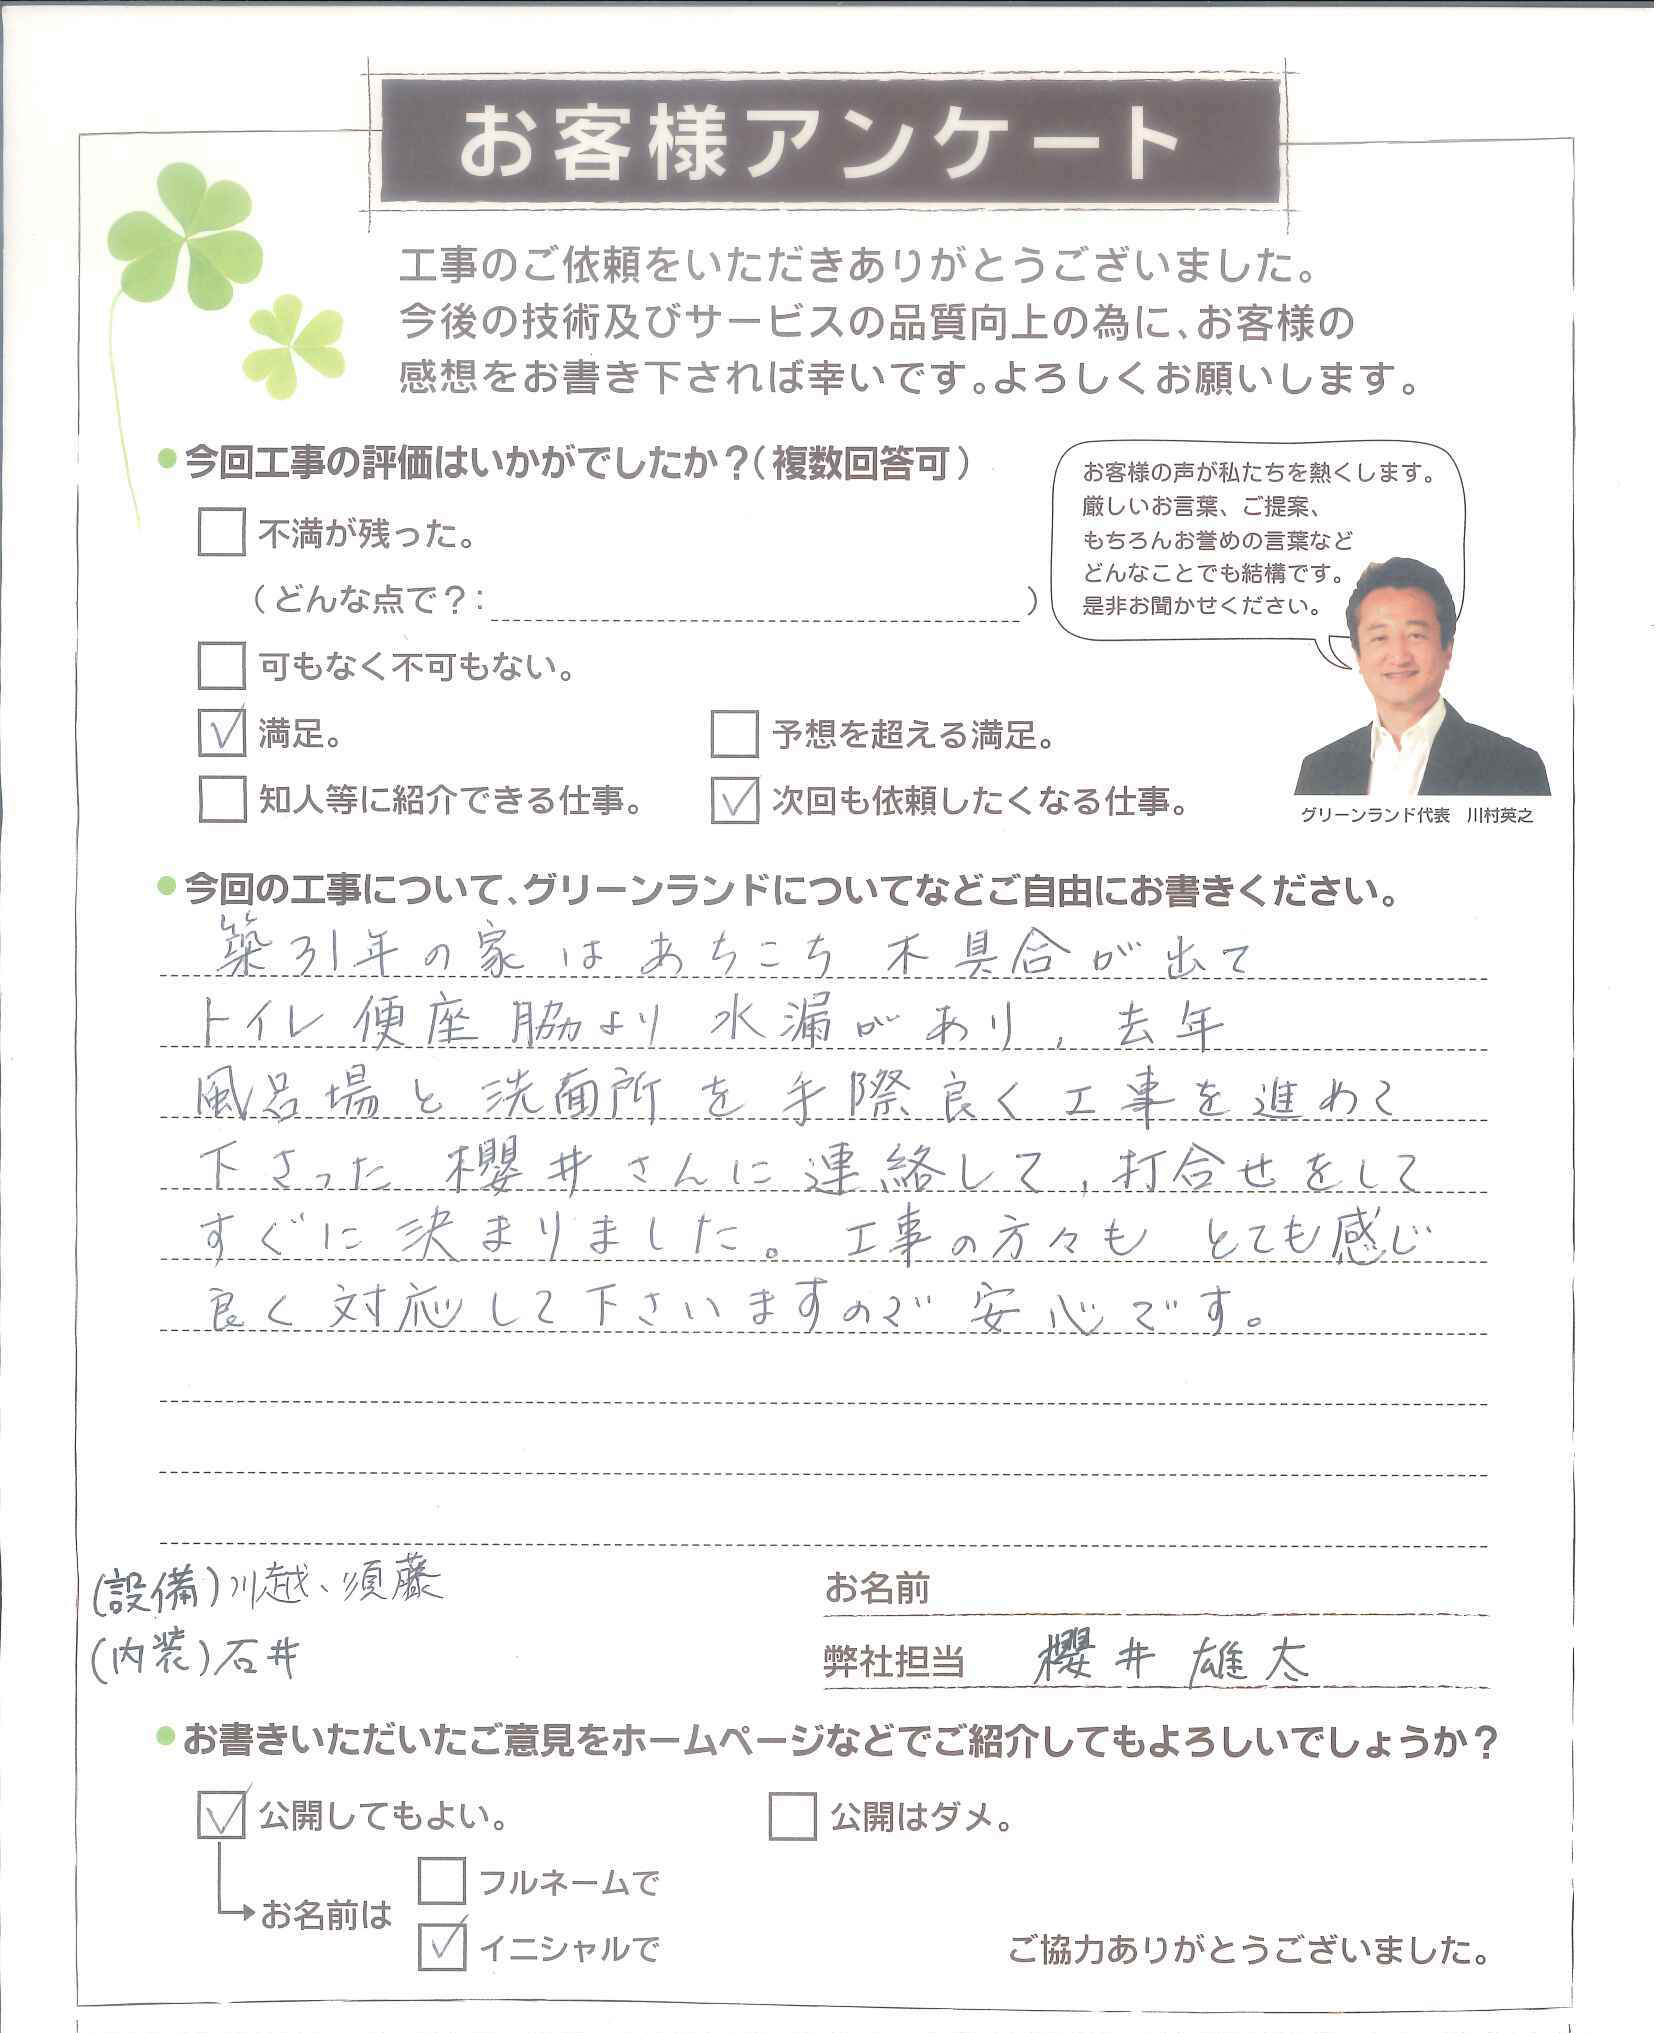 お客様アンケート
工事のご依頼をいただきありがとうございました。
今後の技術及びサービスの品質向上の為に、お客様の
感想をお書き下されば幸いです。よろしくお願いします。
今回工事の評価はいかがでしたか?(複数回答可)
不満が残った。
(どんな点で?: )
可もなく不可もない。
満足。
予想を超える満足。
知人等に紹介できる仕事。
次回も依頼したくなる仕事。
お客様の声が私たちを熱くします。
厳しいお言葉、ご提案、
もちろんお誉めの言葉など
どんなことでも結構です。
是非お聞かせください。
グリーンランド代表 川村英之
今回の工事について、グリーンランドについてなどご自由にお書きください。
築31年の家はあちこち不具合が出て
トイレ便座脇より水漏があり、去年
風呂場と洗面所を手際良く工事を進めて
下さった櫻井さんに連絡して、打合せをして
すぐに決まりました。工事の方々もとても感じ
良く対応して下さいますので安心です。
(設備)川越、須藤
(内装)石井
お名前
弊社担当 櫻井雄太
お書きいただいたご意見をホームページなどでご紹介してもよろしいでしょうか?
公開してもよい。
公開はダメ。
お名前は
フルネームで
イニシャルで
ご協力ありがとうございました。